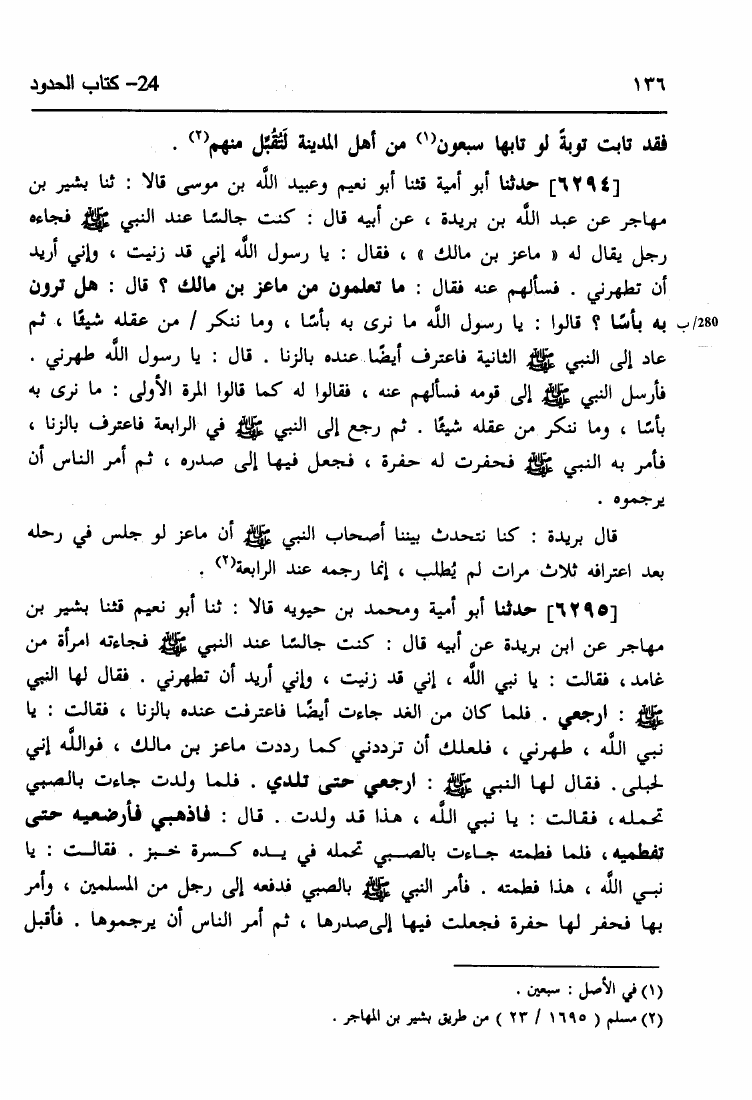 ١٣٦
24- كتاب الحدود
فقد تابت توبةً لو تابها سبعون(١) من أهل المدينة لَتُقُبِّل منهم(٢) .
[٦٢٩٤] حدثنا أبو أمية قثنا أبو نعيم وعبيد اللَّه بن موسى قالا : ثنا بشير بن
مهاجر عن عبد اللَّه بن بريدة ، عن أبيه قال : كنت جالسًا عند النبي ﷺ فجاءه
رجل يقال له « ماعز بن مالك » ، فقال : يا رسول اللَّه إني قد زنيت ، وإني أريد
أن تطهرني . فسألهم عنه فقال : ما تعلمون من ماعز بن مالك ؟ قال : هل ترون
به بأسًا ؟ قالوا : يا رسول اللَّه ما نرى به بأسًا ، وما ننكر / من عقله شيئًا ، ثم
280/ب
عاد إلى النبي ﷺ الثانية فاعترف أيضًا عنده بالزنا . قال : يا رسول اللَّه طهرني .
فأرسل النبي ﷺ إلى قومه فسألهم عنه ، فقالوا له كما قالوا المرة الأولى : ما نرى به
بأسًا ، وما ننكر من عقله شيئًا . ثم رجع إلى النبي ﷺ في الرابعة فاعترف بالزنا ،
فأمر به النبي ﷺ فحفرت له حفرة ، فجعل فيها إلى صدره ، ثم أمر الناس أن
يرجموه .
قال بريدة : كنا نتحدث بيننا أصحاب النبي ﷺ أن ماعز لو جلس في رحله
بعد اعترافه ثلاث مرات لم يُطلب ، إنما رجمه عند الرابعة(٢) .
[٦٢٩٥] حدثنا أبو أمية ومحمد بن حيويه قالا : ثنا أبو نعيم قثنا بشير بن
مهاجر عن ابن بريدة عن أبيه قال : كنت جالسًا عند النبي ﷺ فجاءته امرأة من
غامد، فقالت : يا نبي اللَّه ، إني قد زنيت ، وإني أريد أن تطهرني . فقال لها النبي
ﷺ : ارجعي . فلما كان من الغد جاءت أيضًا فاعترفت عنده بالزنا ، فقالت : يا
نبي اللَّه ، طهرني ، فلعلك أن ترددني كما رددت ماعز بن مالك ، فواللَّه إني
لحبلى. فقال لها النبي ﷺ : ارجعي حتى تلدي . فلما ولدت جاءت بالصبي
تحمله، فقالت : يا نبي اللَّه ، هذا قد ولدت . قال : فاذهبي فأرضعيه حتى
تفطميه، فلما فطمته جاءت بالصبي تحمله في يده كسرة خبز . فقالت : يا
نبي اللَّه ، هذا فطمته . فأمر النبي ﷺ بالصبي فدفعه إلى رجل من المسلمين ، وأمر
بها فحفر لها حفرة فجعلت فيها إلى صدرها ، ثم أمر الناس أن يرجموها . فأقبل
(١) في الأصل : سبعين .
(٢) مسلم ( ١٦٩٥ / ٢٣ ) من طريق بشير بن المهاجر .